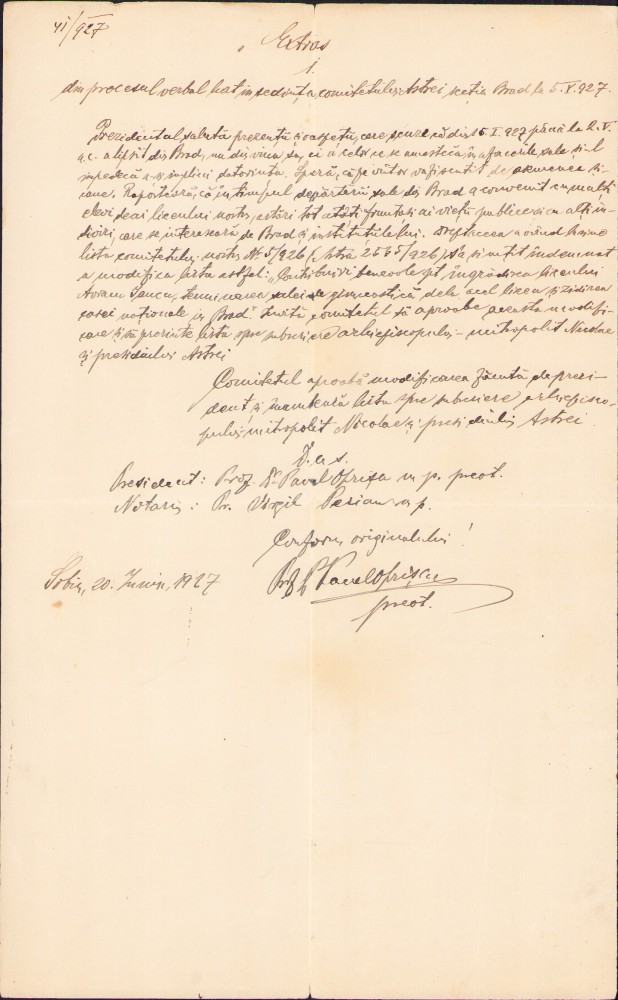 41/927
Extras
1.
din procesul verbal luat în ședința comitetului Astrei secția Brad la 5.V.927.
Prezidentul salută prezenții și oaspeții, cere scuze că din 15.I.927 până la 2.V.
a.c. a lipsit din Brad, nu din vina sa, ci a celor ce se amestecă în afacerile sale și-l
împedecă a-și împlini datorința. Speră, că pe viitor va fi scutit de asemenea și-
cane. Raportează, că în timpul depărtării sale din Brad a convenit cu mulți
elevi de ai liceului nostru, astăzi tot atâți fruntași ai vieții publice și cu alți in-
divizi, care se interesară de Brad și institutiile lui. având în vedere
lista comitetului nostru No 5/926 (Astra 2535/926) s'a simțit îndemnat
a modifica lista astfel: „Contribuiri benevole pt. îngrădirea liceului
Avram Iancu, terminarea salei de gimnastică dela acel liceu și zidirea
casei naționale în Brad". Invită comitetul să aproabe aceasta modifi-
care și să prezinte lista spre subscriere arhiepiscopului-mitropolit Nicolae
și prezidiului Astrei
Comitetul aproabă modificarea făcută de prezi-
dent și înaintează lista spre subscriere arhiepisco-
pului-mitropolit Nicolae și prezidiului Astrei.
D.u.s.
President: Prof. Dr Pavel Oprișa m.p. preot.
Notariu: Pr. Virgil Perian m.p.
Conform originalului!
Sibiu, 20. Iunie, 1927
Prof. Dr Pavel Oprișa
preot.